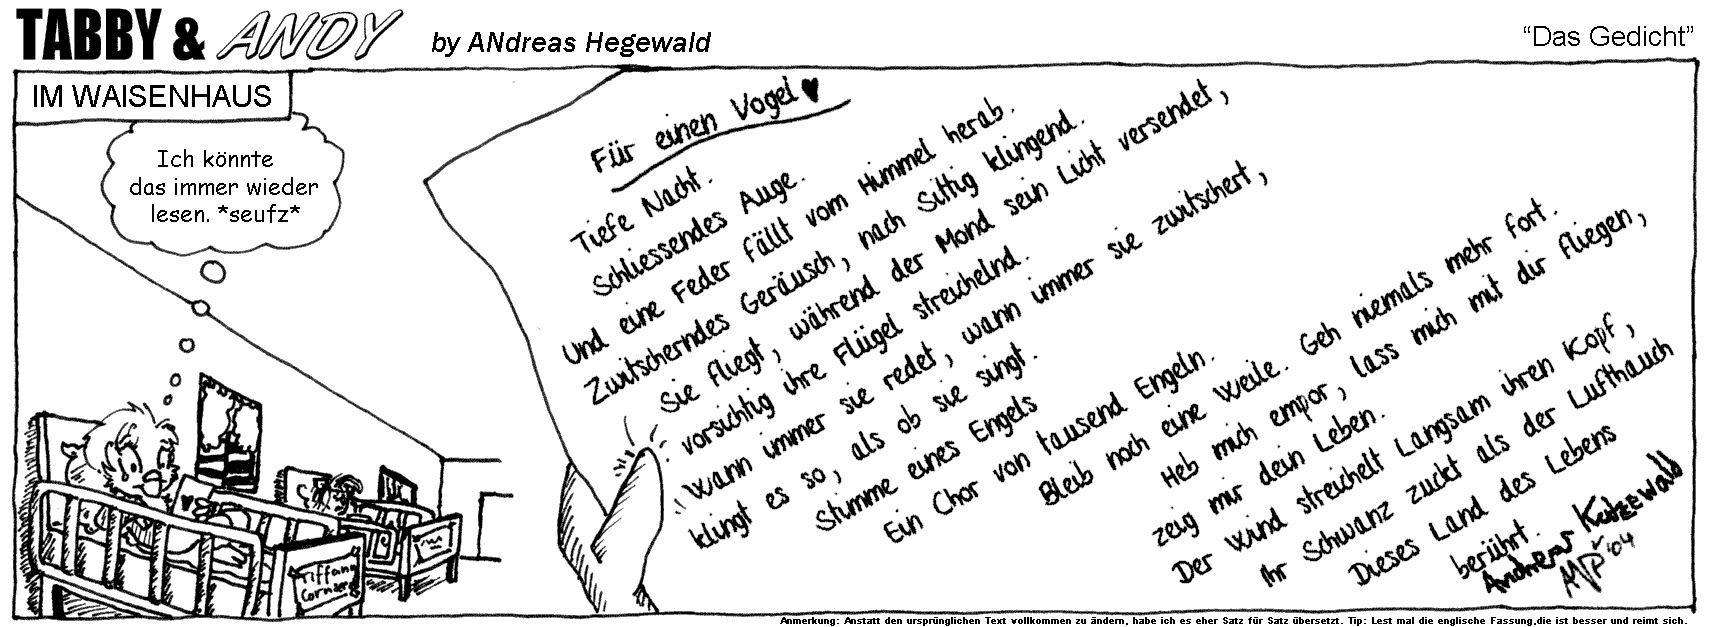 TABBY & ANDY
by ANdreas Hegewald
"Das Gedicht"
IM WAISENHAUS
Ich könnte
das immer wieder
lesen. *seufz*
Tiffany
Für einen Vogel ♥
Tiefe Nacht.
Schliessendes Auge.
Und eine Feder fällt vom Himmel herab.
Zwitscherndes Geräusch, nach Sittig klingend.
Sie fliegt, während der Mond sein Licht versendet,
vorsichtig ihre Flügel streichelnd.
Wann immer sie redet, wann immer sie zwitschert,
klingt es so, als ob sie singt.
Stimme eines Engels
Ein Chor von tausend Engeln.
Bleib noch eine Weile. Geh niemals mehr fort.
Heb mich empor, lass mich mit dir fliegen,
zeig mir dein Leben.
Der Wind streichelt Langsam ihren Kopf,
Ihr Schwanz zuckt als der Lufthauch
Dieses Land des Lebens
berührt.
Andreas Katzewald
'04
Anmerkung: Anstatt den ursprünglichen Text vollkommen zu ändern, habe ich es eher Satz für Satz übersetzt. Tip: Lest mal die englische Fassung,die ist besser und reimt sich.